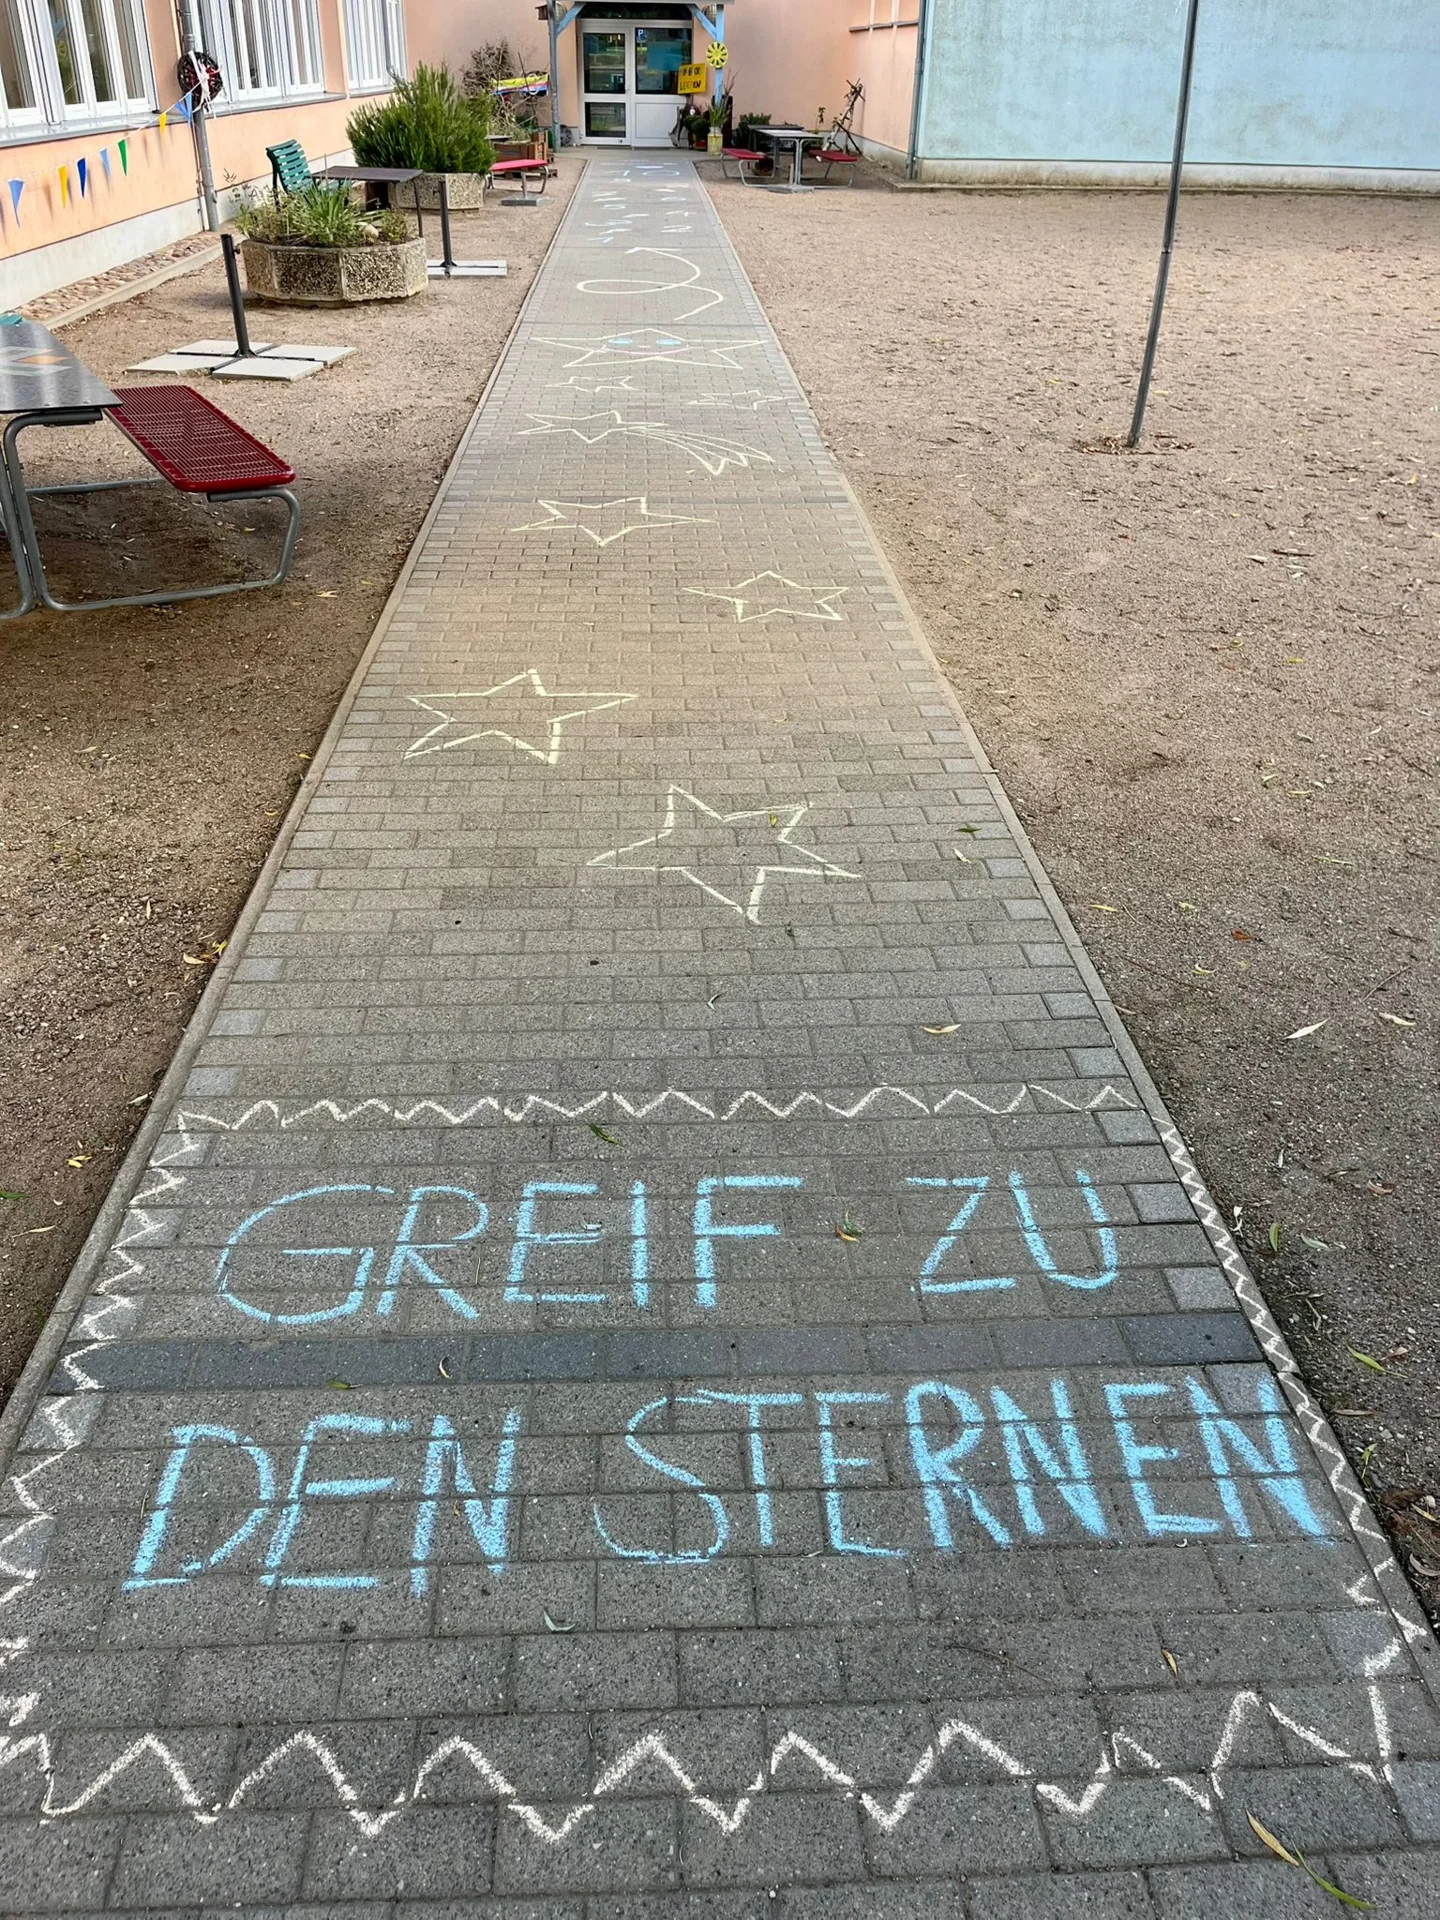 GREIF ZU
DEN STERNEN